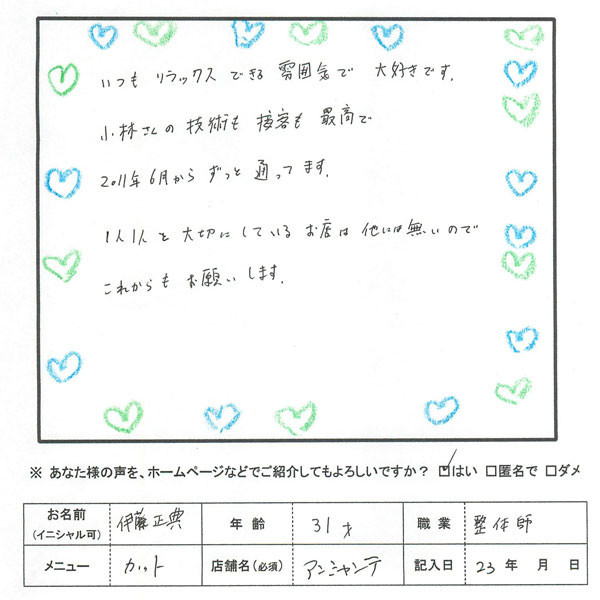 いつも リラックス できる 雰囲気で 大好きです.
小林さんの 技術も 接客も 最高で
2011年6月から ずっと 通ってます.
1人1人を 大切にしている お店は 他には 無いので
これからも お願いします.
※ あなた様の声を、ホームページなどでご紹介してもよろしいですか？ ☑はい □匿名で □ダメ
お名前 (イニシャル可) 伊藤正典 年齢 31才 職業 整体師
メニュー カット 店舗名(必須) アンシャンテ 記入日 23年 月 日